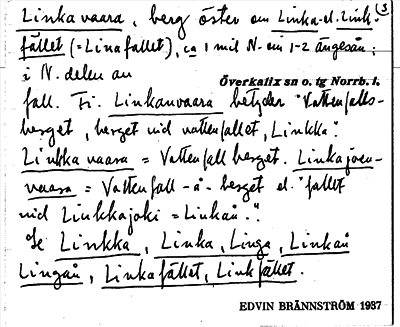 (3
Linkavaara, berg öster om Linka- el. Link-
fället (= Linafallet), ca 1 mil N. om 1-2 ängesån;
i N. delen av
Överkalix sn o. tg Norrb. l.
fall. Fi. Linkanvaara betyder "Vattenfalls-
berget, berget vid vattenfallet, Linkka".
Linkka vaara = Vattenfall berget. Linkajoen-
vaara = Vattenfall-å-berget el. "fallet
vid Linkkajoki = Linkaån."
Se Linkka, Linka, Linga, Linkaån
Lingaån, Linkafället, Linkfället.
EDVIN BRÄNNSTRÖM 1937